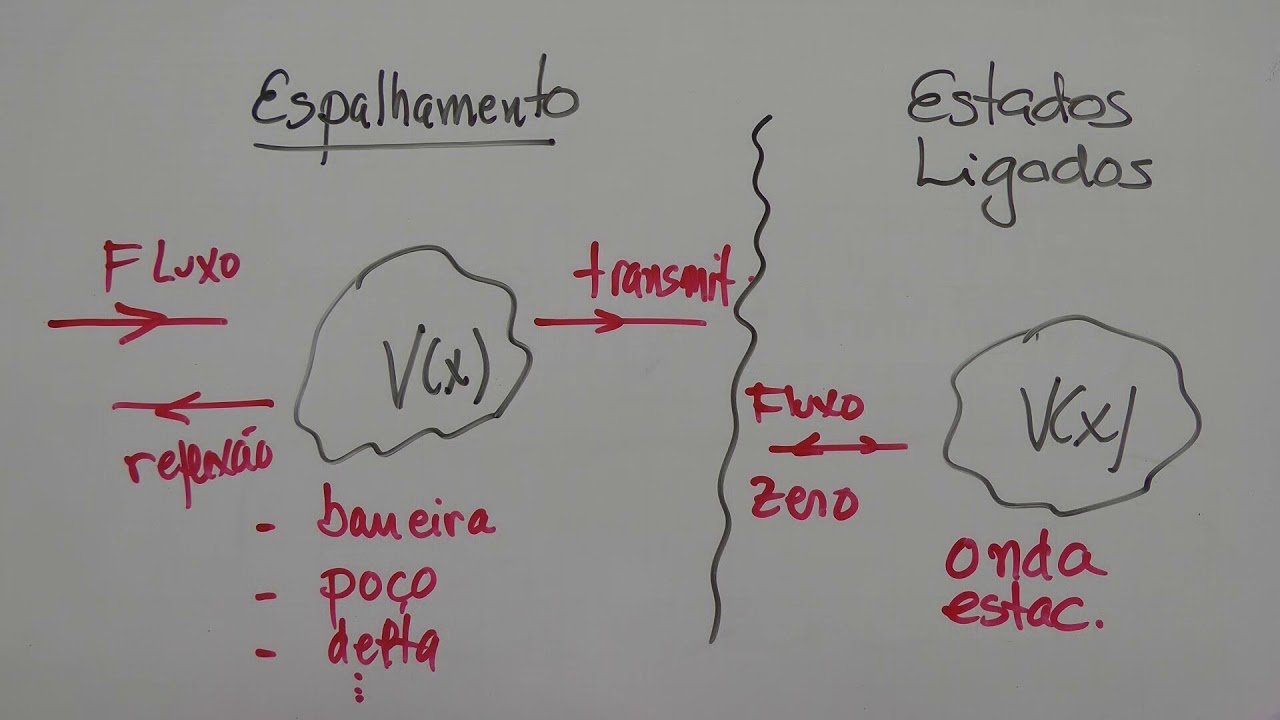 Espalhamento
Fluxo
V(x)
transmit.
reflexão
- barreira
- poço
- delta
⋮
Estados
Ligados
Fluxo
Zero
V(x)
onda
estac.